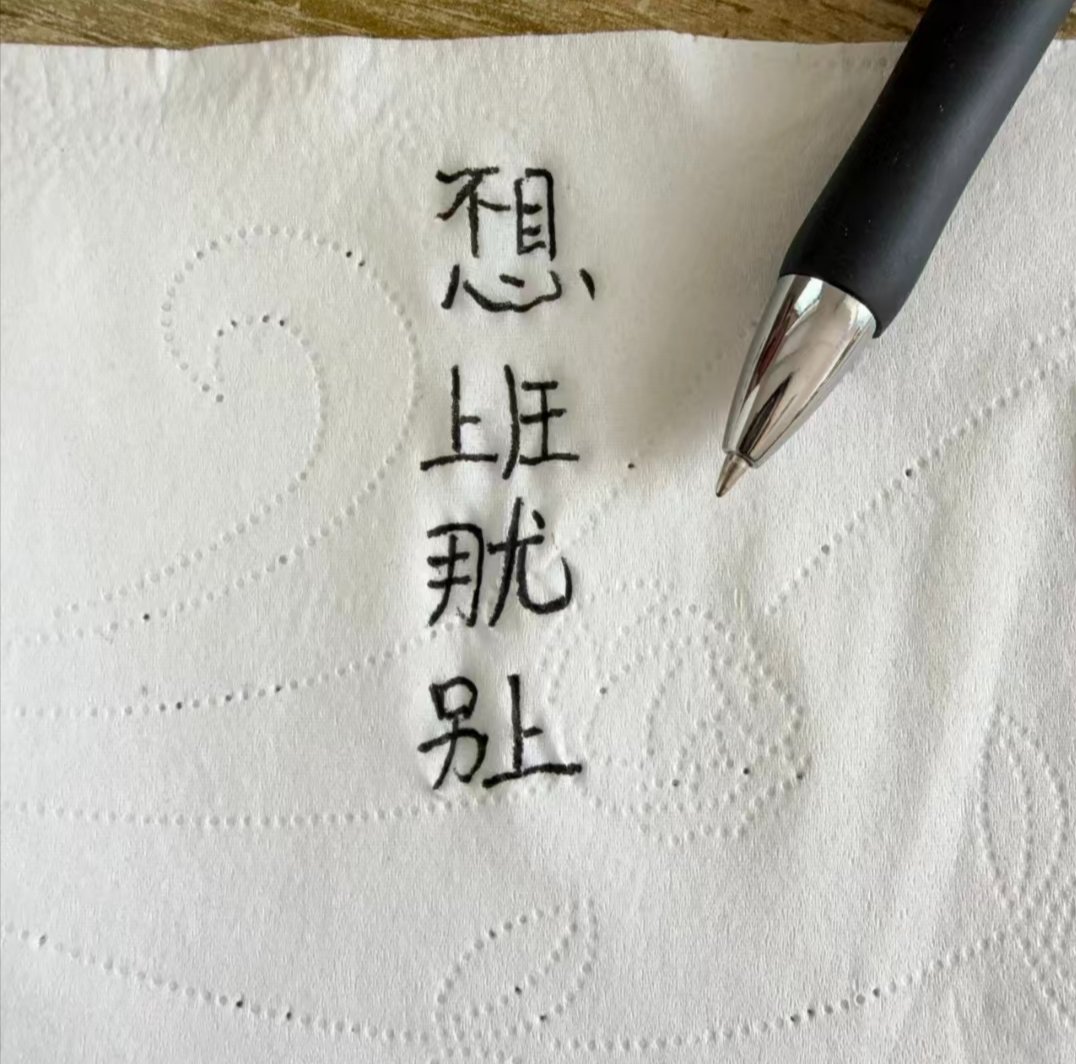 不想上班那就别上